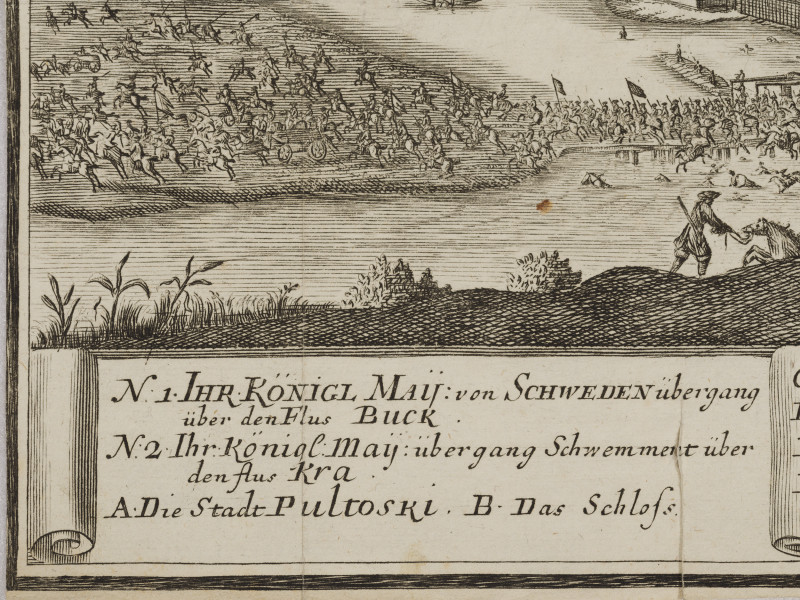 N. 1. IHR. KÖNIGL MAIJ: von SCHWEDEN übergang
über den Flus BUCK.
N. 2. Ihr. Königl: Maij: übergang Schwemment über
den flus Kra.
A. Die Stadt PULTOSKI. B. Das Schloſs.